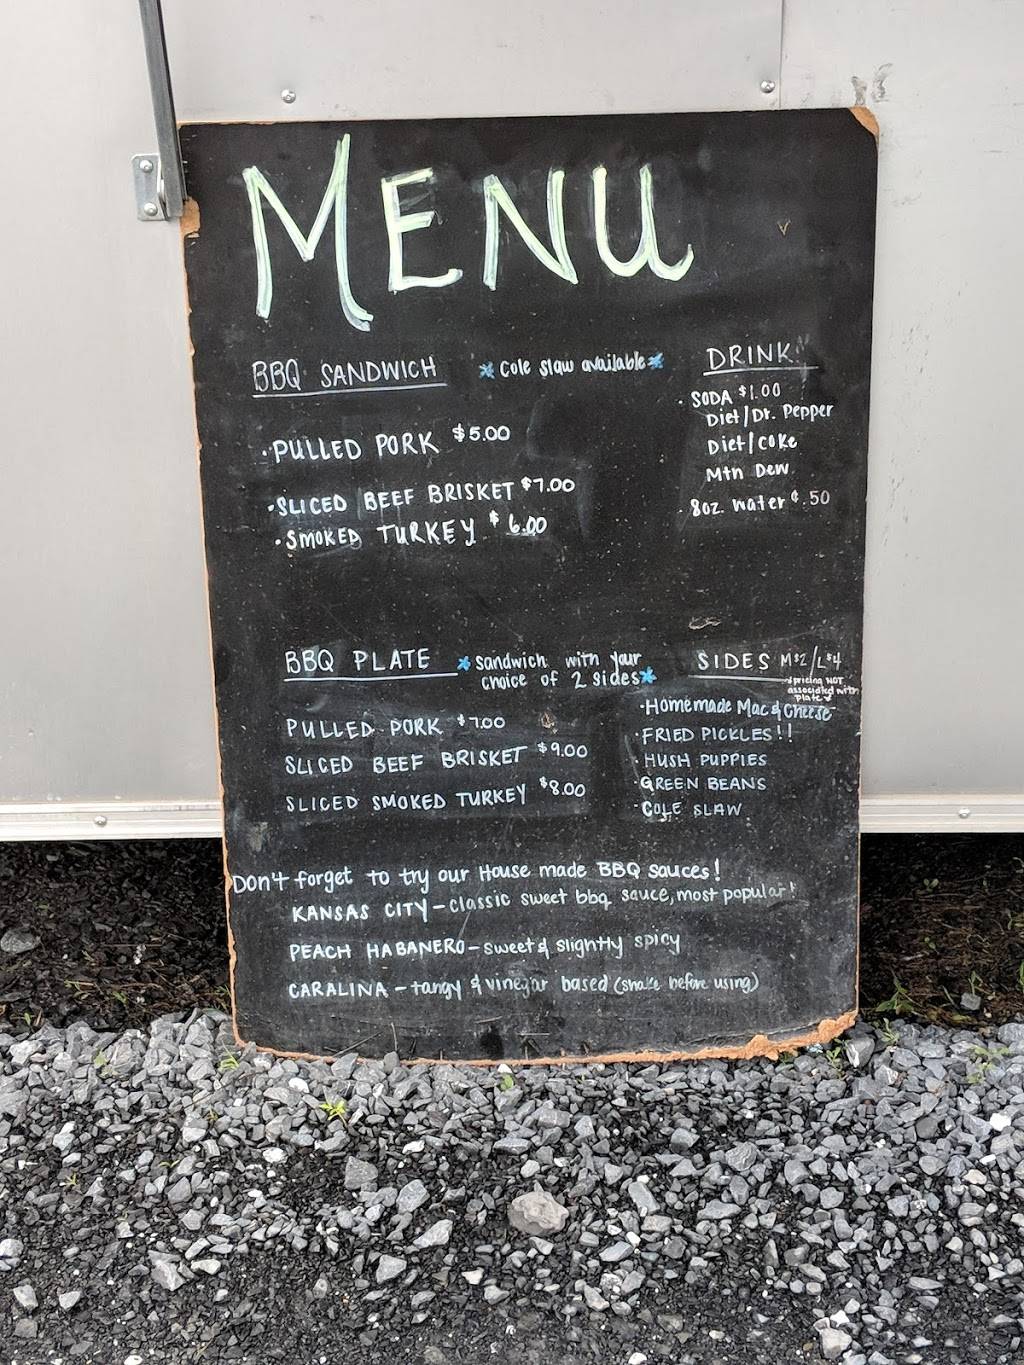 MENU
BBQ SANDWICH
*Cole slaw available*
· PULLED PORK $5.00
· SLICED BEEF BRISKET $7.00
· SMOKED TURKEY $6.00
DRINK
· SODA $1.00
Diet/Dr. Pepper
Diet/Coke
Mtn Dew
· 8oz. water ¢.50
BBQ PLATE
*Sandwich with your
choice of 2 sides*
PULLED PORK $7.00
SLICED BEEF BRISKET $9.00
SLICED SMOKED TURKEY $8.00
SIDES M$2/L$4
pricing NOT
associated with
plate
· Homemade Mac & Cheese
· FRIED PICKLES!!
· HUSH PUPPIES
· GREEN BEANS
· COLE SLAW
Don't forget to try our House made BBQ sauces!
KANSAS CITY - classic sweet bbq sauce, most popular!
PEACH HABANERO - sweet & slightly spicy
CARALINA - tangy & vinegar based (shake before using)